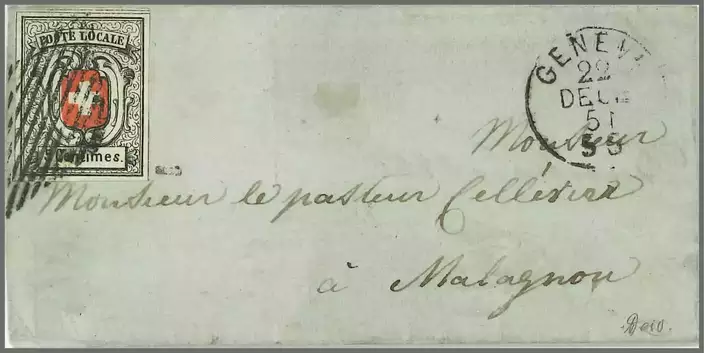 POSTE LOCALE
Centimes.
GENEV
22
DECE
51
Monsieur
Monsieur le pasteur Cellérier
à Malagnou